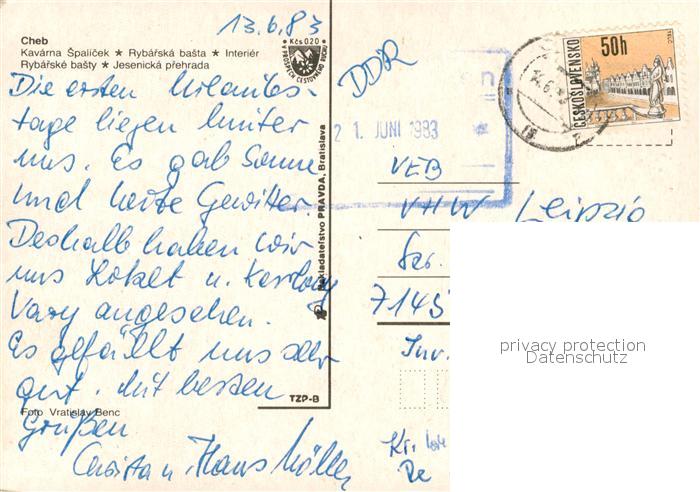 13.6.83
Cheb
Kavárna Špalíček ★ Rybářská bašta ★ Interiér
Rybářské bašty ★ Jesenická přehrada
Kčs 0,20
V PROSPĚCH CESTOVNÍHO RUCHU
DDR
50h
ČESKOSLOVENSKO
21. JUNI 1983
Die ersten Urlaubs-
tage liegen hinter
uns. Es gab Sonne
und heute Gewitter.
Deshalb haben wir
uns Loket u. Karlovy
Vary angesehen.
Es gefällt uns sehr
gut. Mit besten
Grüßen
Christa u. Hans Müller
Nakladatelstvo PRAVDA, Bratislava
TZP-B
Foto Vratislav Benc
VEB
VHW Leipzig
7145
privacy protection
Datenschutz